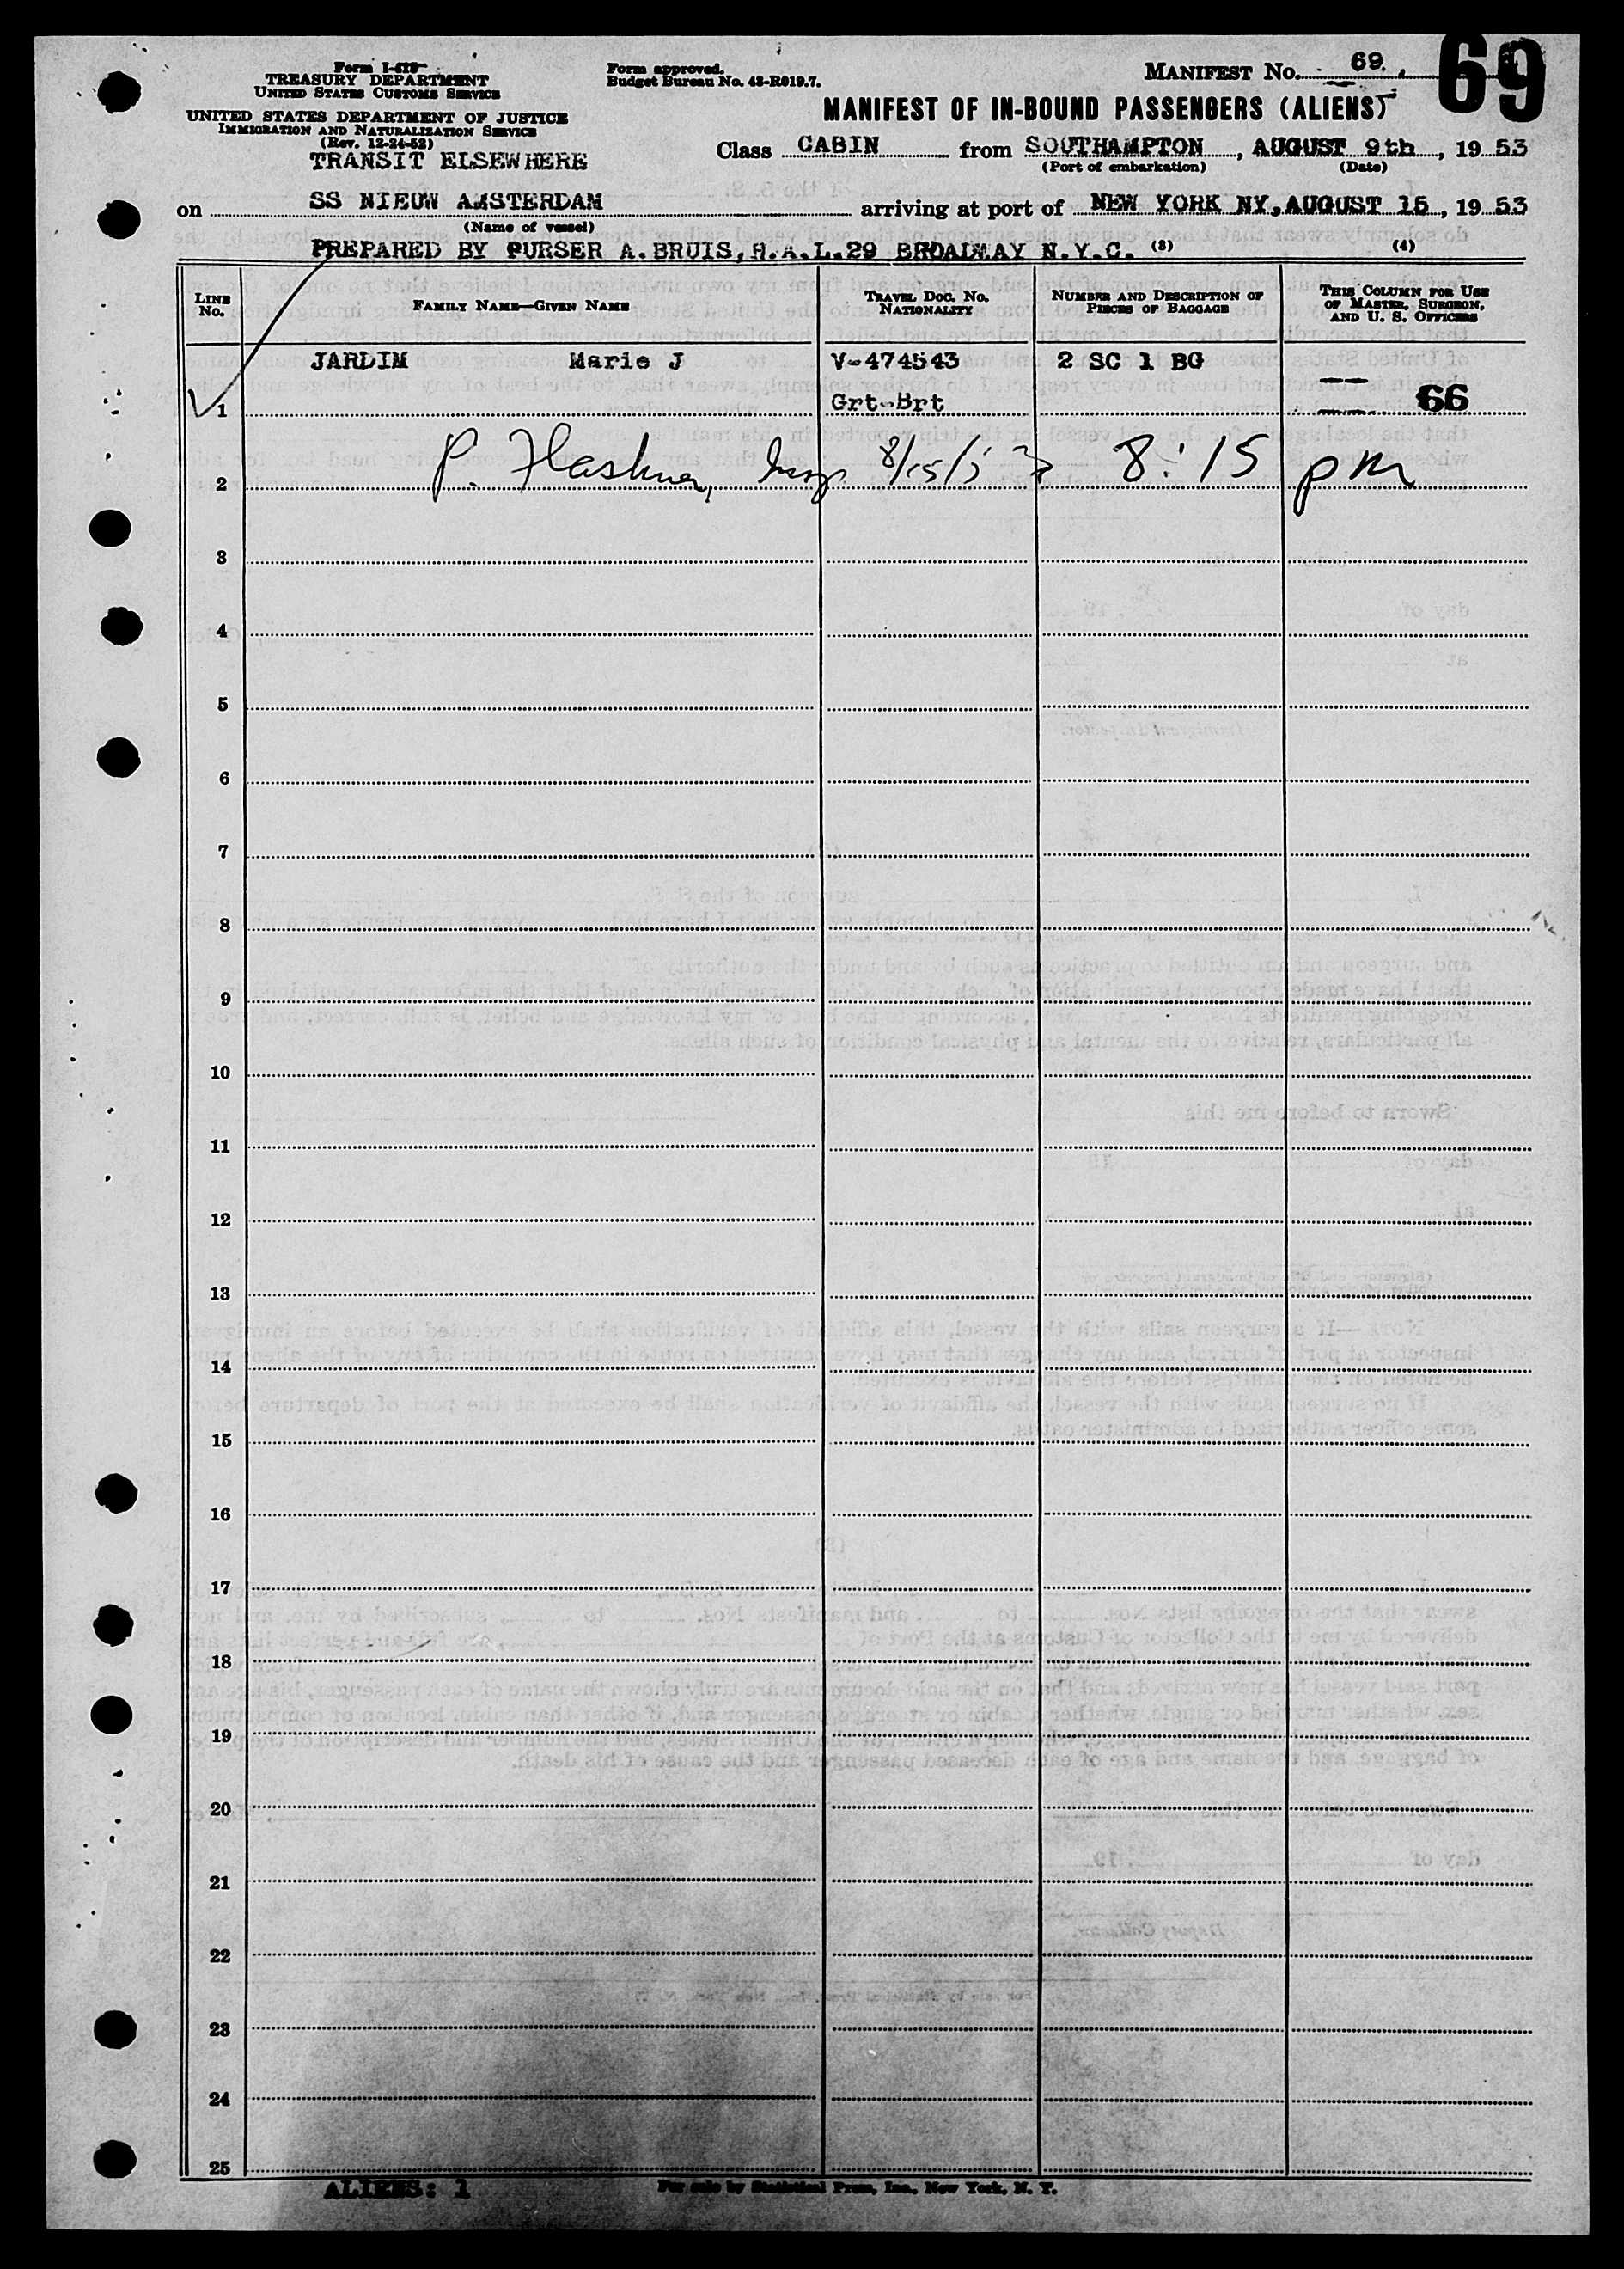 Form I-418
TREASURY DEPARTMENT
UNITED STATES CUSTOMS SERVICE
UNITED STATES DEPARTMENT OF JUSTICE
IMMIGRATION AND NATURALIZATION SERVICE
(Rev. 12-24-52)
TRANSIT ELSEWHERE
Form approved.
Budget Bureau No. 43-R019.7.
MANIFEST No. 69.
69
MANIFEST OF IN-BOUND PASSENGERS (ALIENS)
Class CABIN from SOUTHAMPTON, AUGUST 9th, 19 53
(Port of embarkation) (Date)
on SS NIEUW AMSTERDAM arriving at port of NEW YORK NY, AUGUST 15, 19 53
(Name of vessel)
PREPARED BY PURSER A. BRUIS, H.A.L. 29 BROADWAY N.Y.C. (3) (4)
LINE No. FAMILY NAME—GIVEN NAME TRAVEL DOC. NO. NATIONALITY NUMBER AND DESCRIPTION OF PIECES OF BAGGAGE THIS COLUMN FOR USE OF MASTER, SURGEON, AND U. S. OFFICERS
JARDIM Marie J V-474543 2 SC 1 BG
1 Grt-Brt 66
2 P. 8/15/53 8:15 pm
3
4
5
6
7
8
9
10
11
12
13
14
15
16
17
18
19
20
21
22
23
24
25
ALIENS: 1 For sale by Statistical Press, Inc., New York, N. Y.